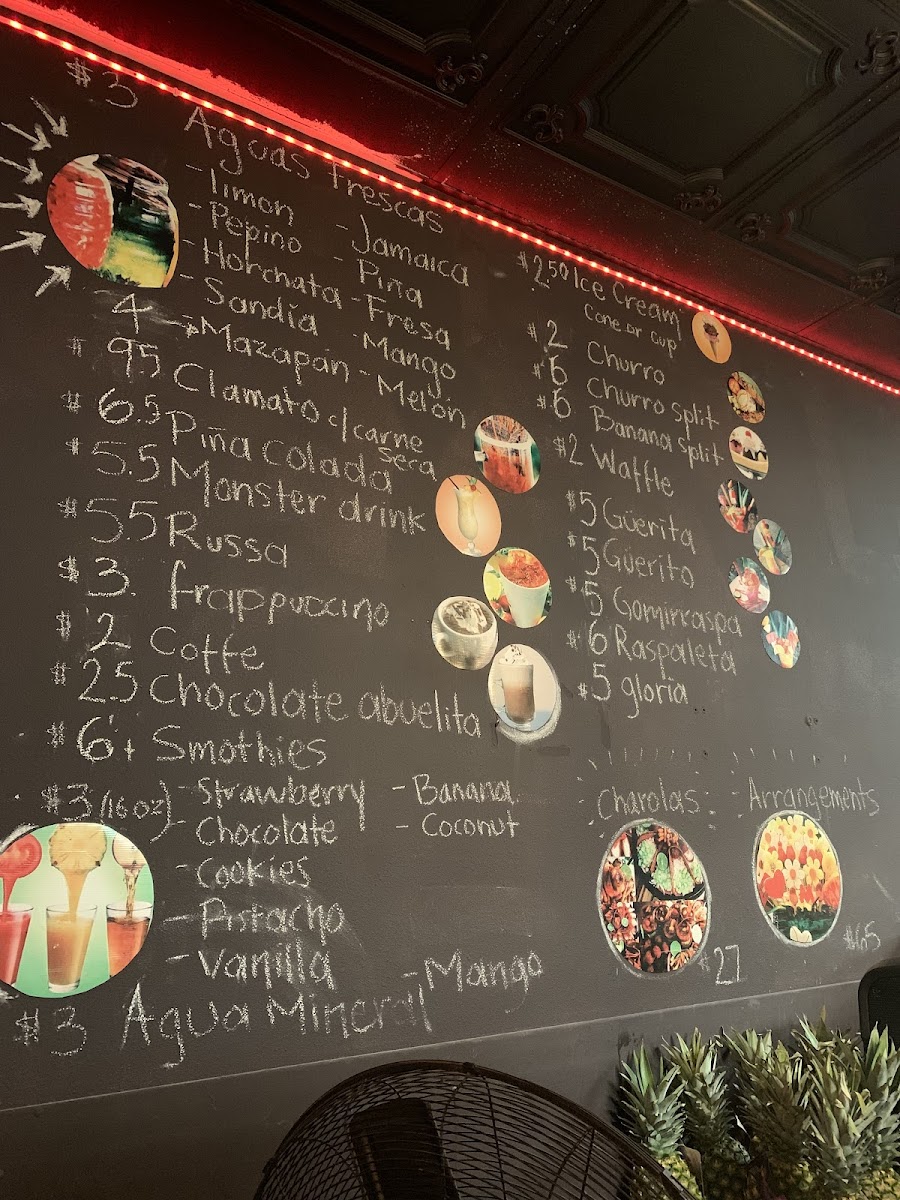 $.3
Aguas frescas
- limon
- Pepino
- Horchata
- Sandía
- Mazapán
- Jamaica
- Piña
- Fresa
- Mango
- Melón
4
95 Clamato c/ carne seca
$6.5 Piña colada
$5.5 Monster drink
$5.5 Russa
$3. frappuccino
$2 Coffe
$25 Chocolate abuelita
$6+ Smothies
$3 (16 oz)
- Strawberry
- Chocolate
- Cookies
- Pistacho
- Vanilla
- Banana
- Coconut
- Mango
$3 Agua Mineral
$2.50 Ice Cream
Cone or cup
$2 Churro
$6 Churro split
$6 Banana split
$2 Waffle
$5 Güerita
$5 Güerito
$5 Gomirraspa
$6 Raspaleta
$5 gloria
Charolas
$27
Arrangements
$65